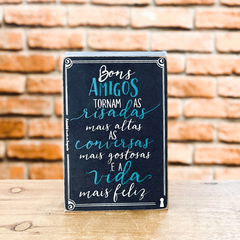 Bons
AMIGOS
TORNAM AS
risadas
mais altas
AS
conversas
mais gostosas
E A
vida
mais feliz